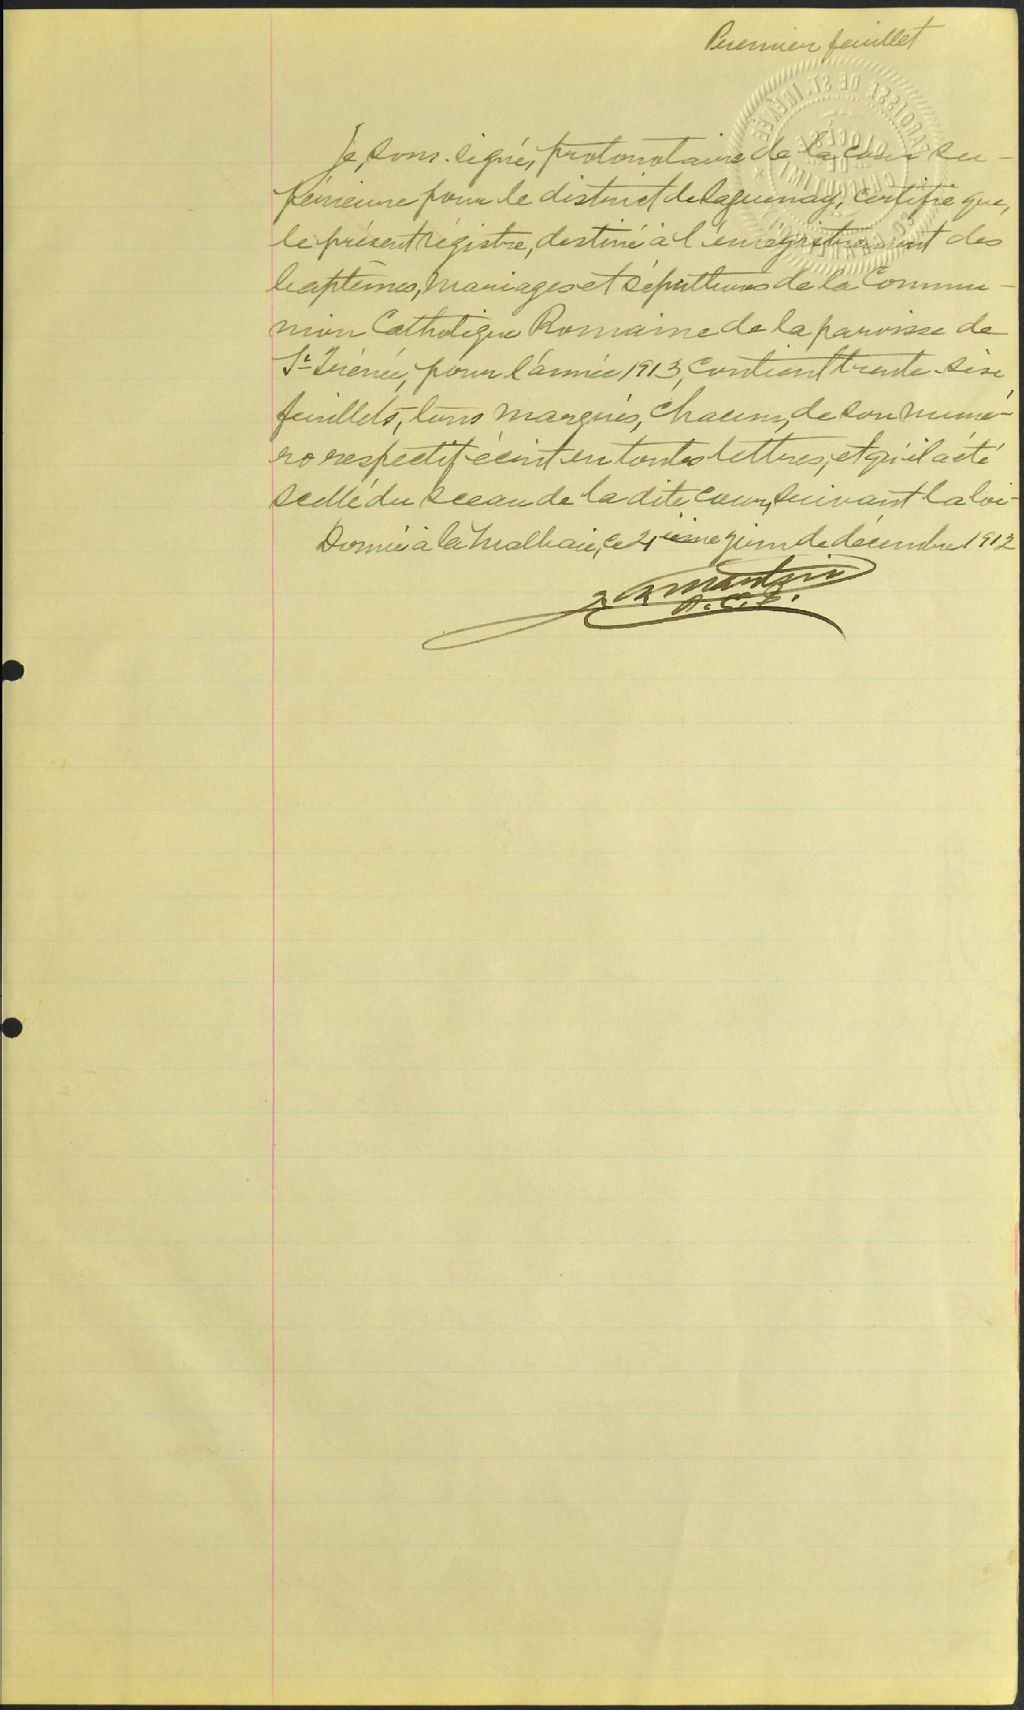 Premier feuillet
PAROISSE DE ST. IRÉNÉE
DIOCÈSE
DE
CHICOUTIMI
Je, sous-signé, protonotaire de la cour su-
périeure pour le district de Saguenay, certifie que,
le présent régistre, destiné à l'enrégistrement des
baptêmes, mariages et sépultures de la Commu-
nion Catholique Romaine de la paroisse de
St-Irénée, pour l'année 1913, contient trente-six
feuillets, tous marqués, chacun, de son numé-
ro respectif écrit en toutes lettres, et qu'il a été
scellé du sceau de la dite cour, suivant la loi-
Donné à la Malbaie, ce jour de décembre 1912